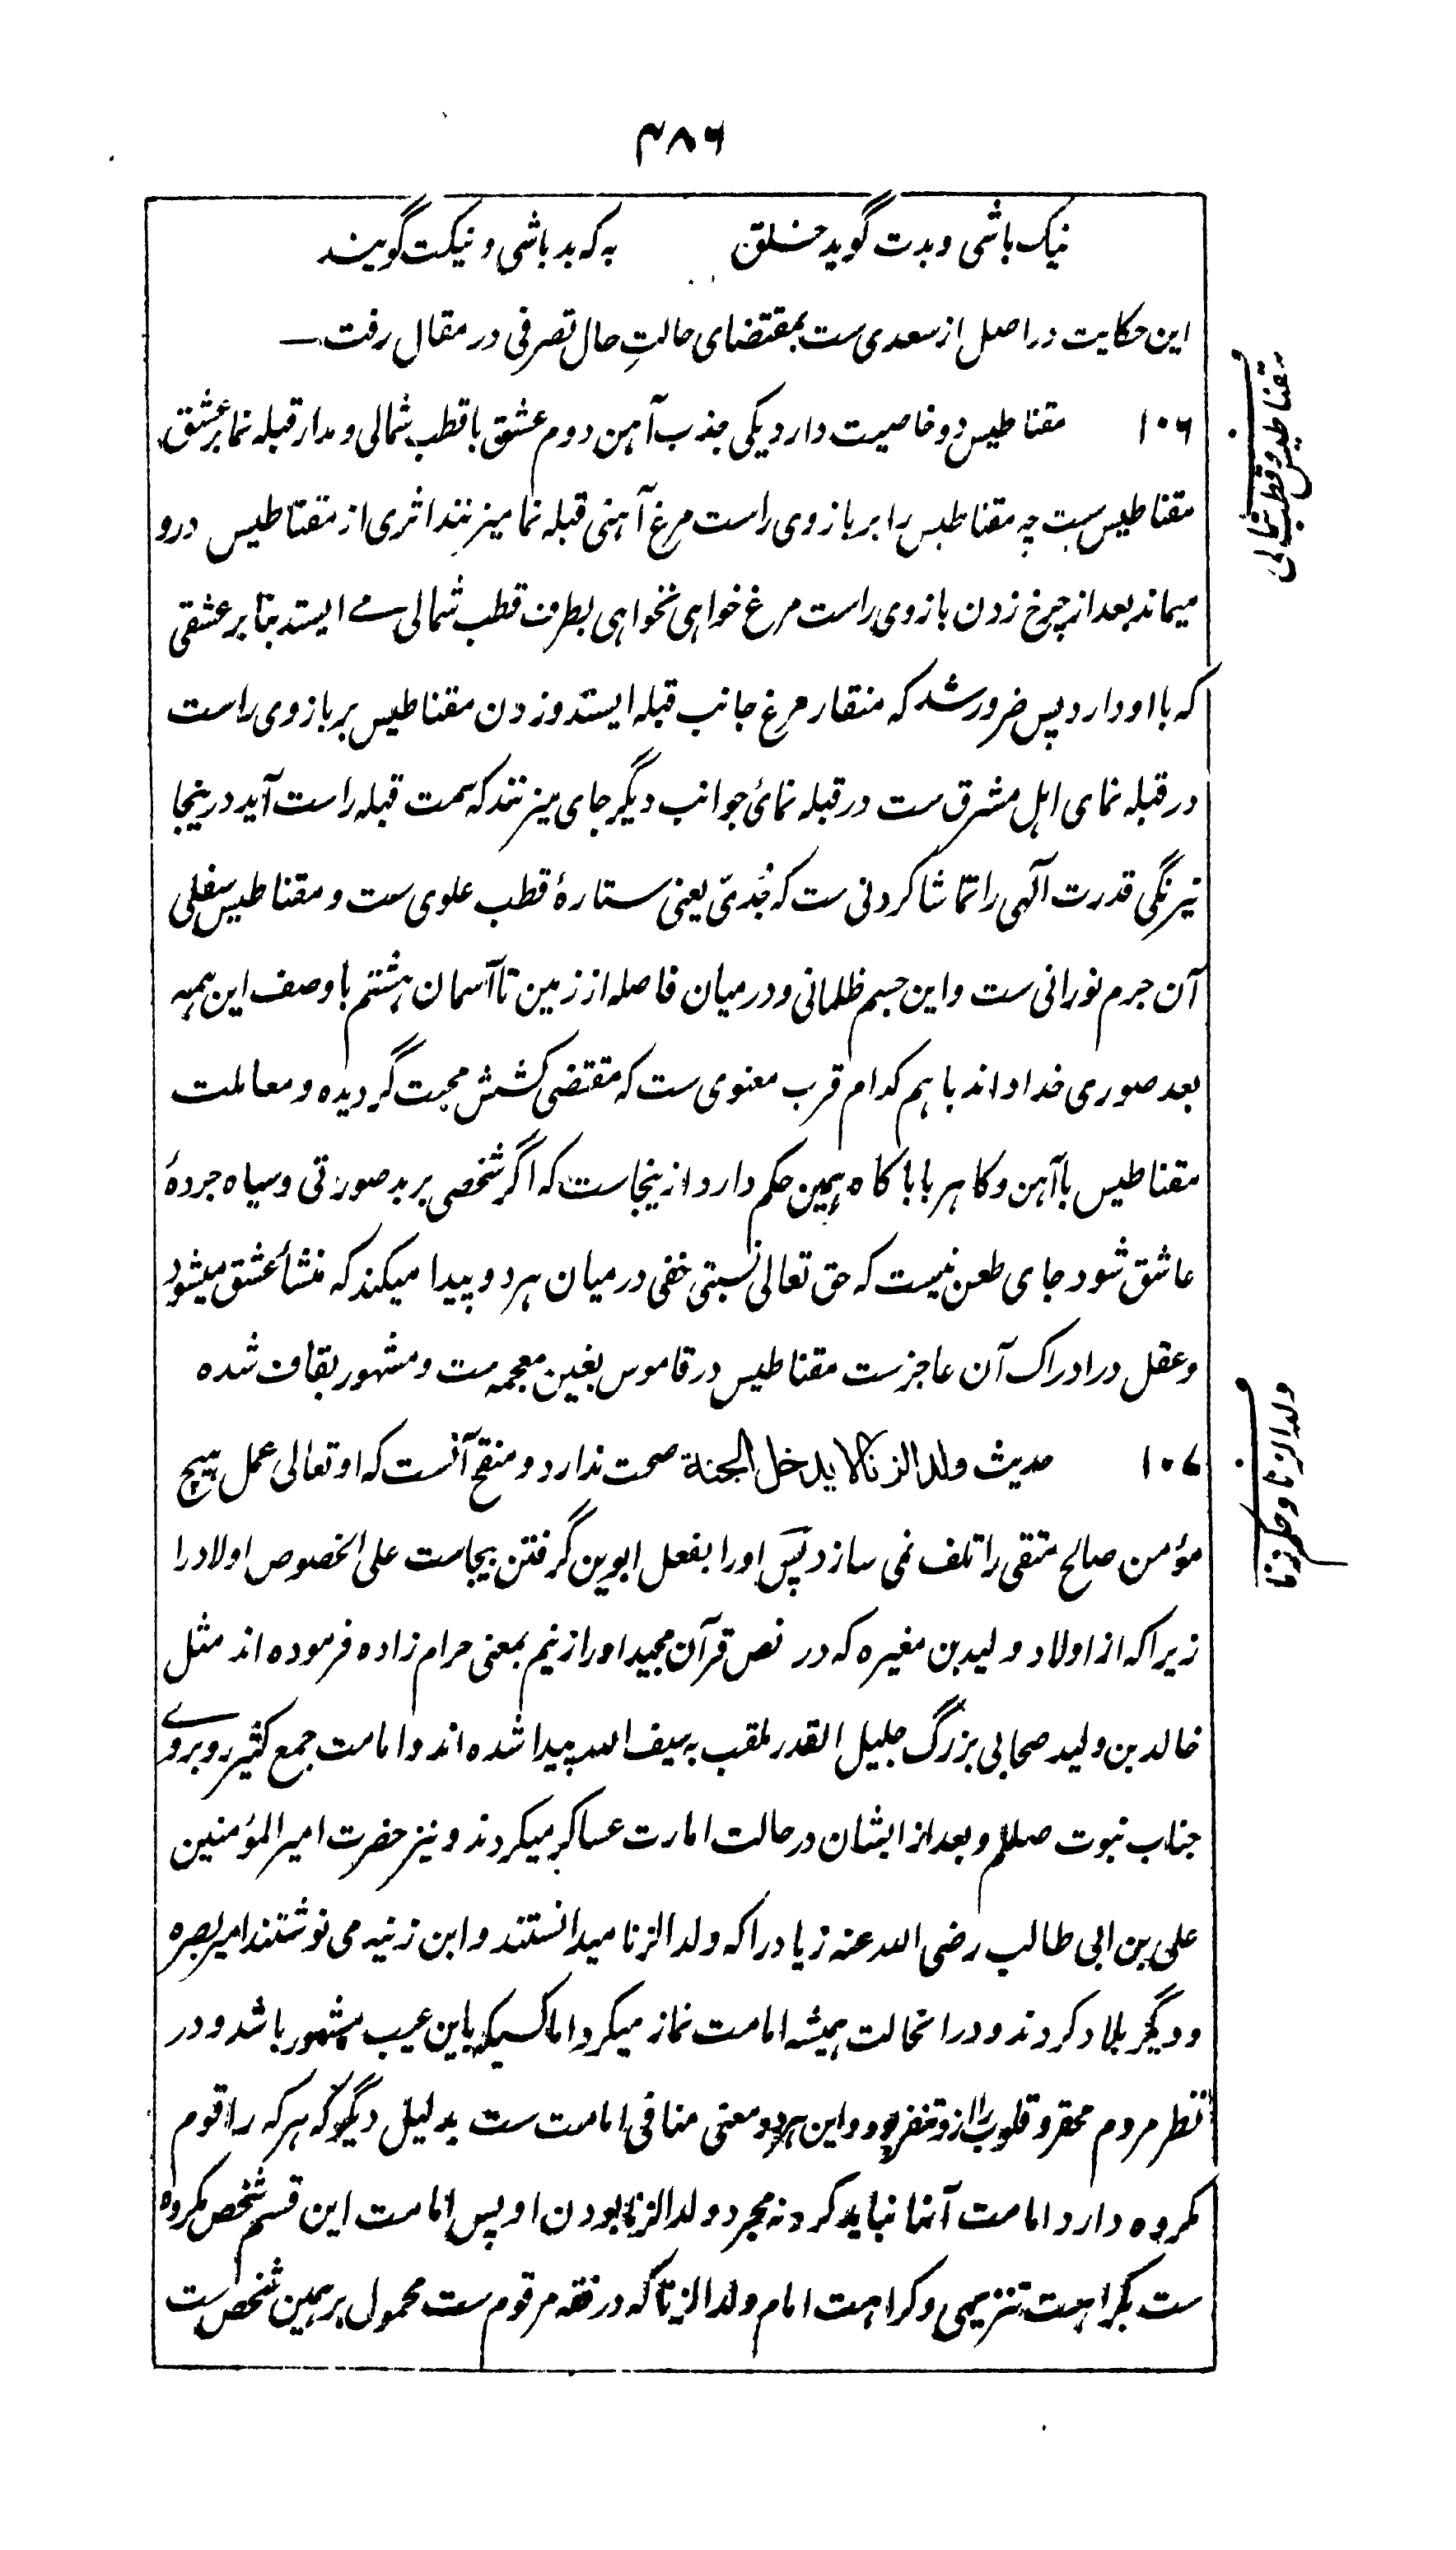 ۳۸۶
نیک باشی و بدت گوید خلق به که بد باشی و نیکت گویند
این حکایت در اصل از سعدی ست بمقتضای حالتِ حال تصرفی در مقال رفت
۱۰۶ مقناطیس دو خاصیت دارد یکی جذب آهن دوم عشق با قطب شمالی و مدار قبله نما بر عشق
مقناطیس ست چه مقناطیس را بر بازوی راست مرغ آهنی قبله نما میزنند اثری از مقناطیس درو
میماند بعد از چرخ زدن بازوی راست مرغ خواهی نخواهی بطرف قطب شمالی مے ایستد بنا بر عشقی
که با او دارد پس ضرور شد که منقار مرغ جانب قبله ایستد و زدن مقناطیس بر بازوی راست
در قبله نمای اهل مشرق ست در قبله نمائ جوانب دیگر جای میزنند که سمت قبله راست آید درینجا
نیرنگی قدرت آلهی را تماشا کردنی ست که جُدَیّ یعنی ستارۂ قطب علوی ست و مقناطیس سفلی
آن جرم نورانی ست و این جسم ظلمانی و درمیان فاصله از زمین تا آسمان هشتم با وصف این همه
بعد صوری خدا داند باهم کدام قرب معنوی ست که مقتضی کشش محبت گردیده و معاملت
مقناطیس با آهن و کاهربا با کاه همین حکم دارد ازینجاست که اگر شخصی بر بد صورتی و سیاه جردۂ
عاشق شود جای طعن نیست که حق تعالی نسبتی خفی درمیان هردو پیدا میکند که منشأ عشق میشود
و عقل در ادراک آن عاجزست مقناطیس در قاموس بغین معجمه ست و مشهور بقاف شده
۱۰۷ حدیث ولد الزنا لا یدخل الجنة صحت ندارد و منقح آنست که او تعالی عمل هیچ
مؤمن صالح متقی را تلف نمی سازد پس اورا بفعل ابوین گرفتن بیجاست علی الخصوص اولاد را
زیرا که از اولاد ولید بن مغیره که در نص قرآن مجید اورا زنیم بمعنی حرام زاده فرموده اند مثل
خالد بن ولید صحابی بزرگ جلیل القدر ملقب به سیف الله پیدا شده اند و امامت جمع کثیر روبروے
جناب نبوت صللم و بعد از ایشان در حالت امارت عساکر میکردند و نیز حضرت امیر المؤمنین
علی بن ابی طالب رضی الله عنه زیاد را که ولد الزنا میدانستند و ابن زنیه می نوشتند امیر بصره
و دیگر بلاد کردند و در انحالت همیشه امامت نماز میکرد اما کسیکه باین عیب مشهور باشد و در
نظر مردم محقر و قلوب را ازو تنفر بود و این هردو معنی منافی امامت ست بدلیل دیگر که هرکه را قوم
مکروه دارد امامت آنها نباید کرد نه مجرد ولد الزنا بودن او پس امامت این قسم شخص مکروه
ست بکراهت تنزیهی و کراهت امام ولد الزنا که در فقه مرقوم ست محمول بر همین شخص ست
مقناطیس و قطب شمالی
ولد الزنا و حکم زنا